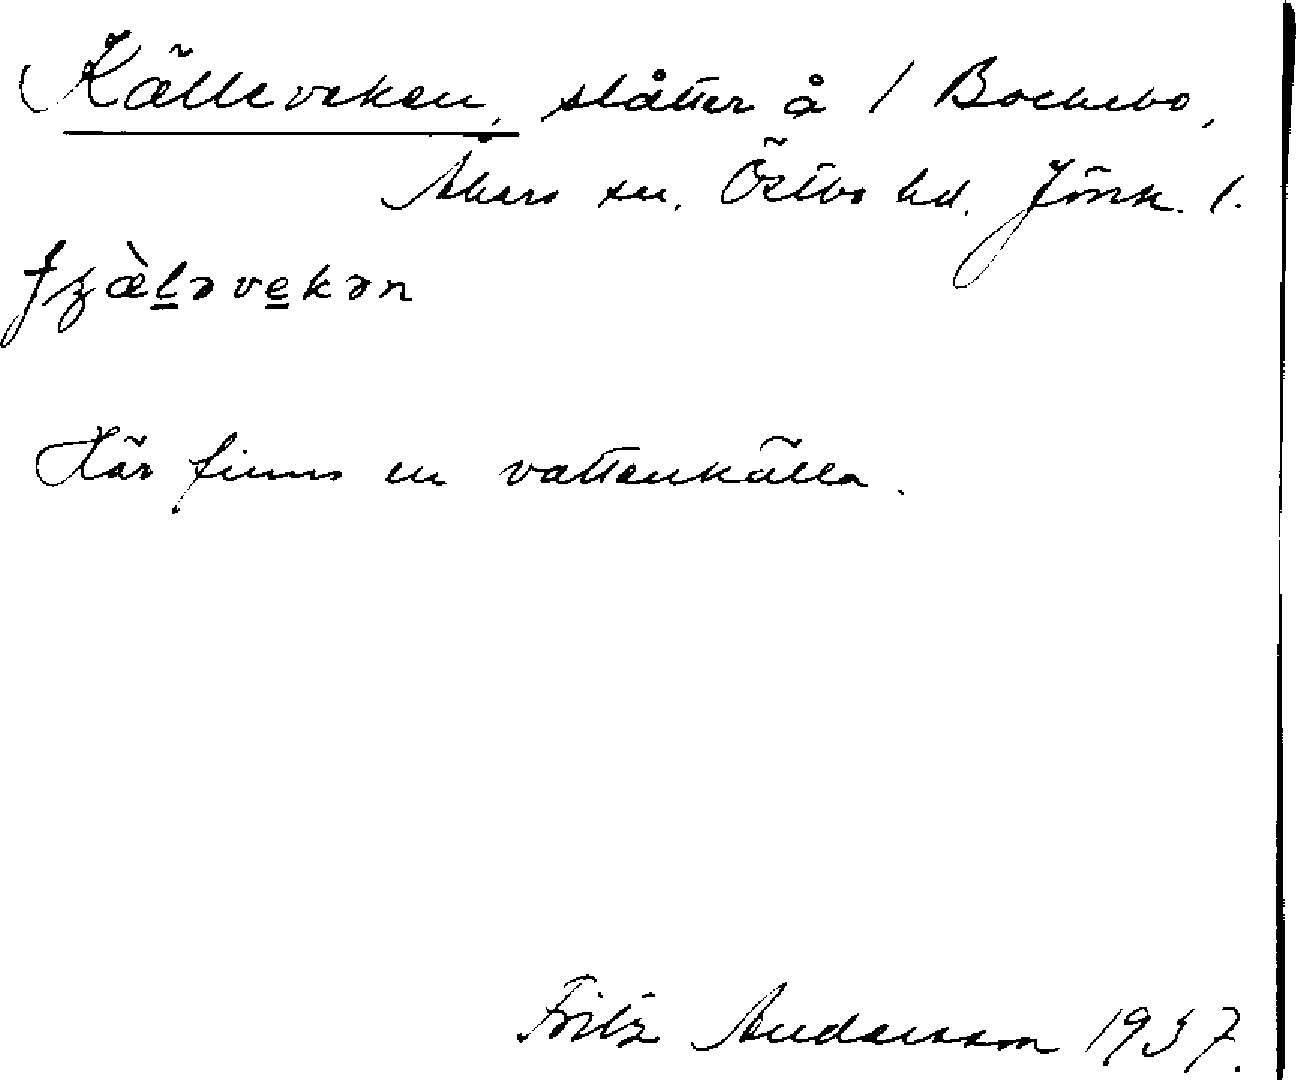 Källeveken, slåtter å 1 Bockebo,
Åkers sn. Östbo hd. Jönk. l.
ʄʒæ̀l̠əve̠kən
Här finns en vattenkälla.
Fritz Andersson 1937.